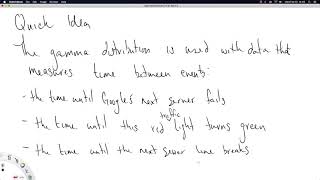 Quick Idea
The gamma distribution is used with data that
measures time between events:
- the time until Google's next server fails
- the time until this red traffic light turns green
- the time until the next sewer line breaks